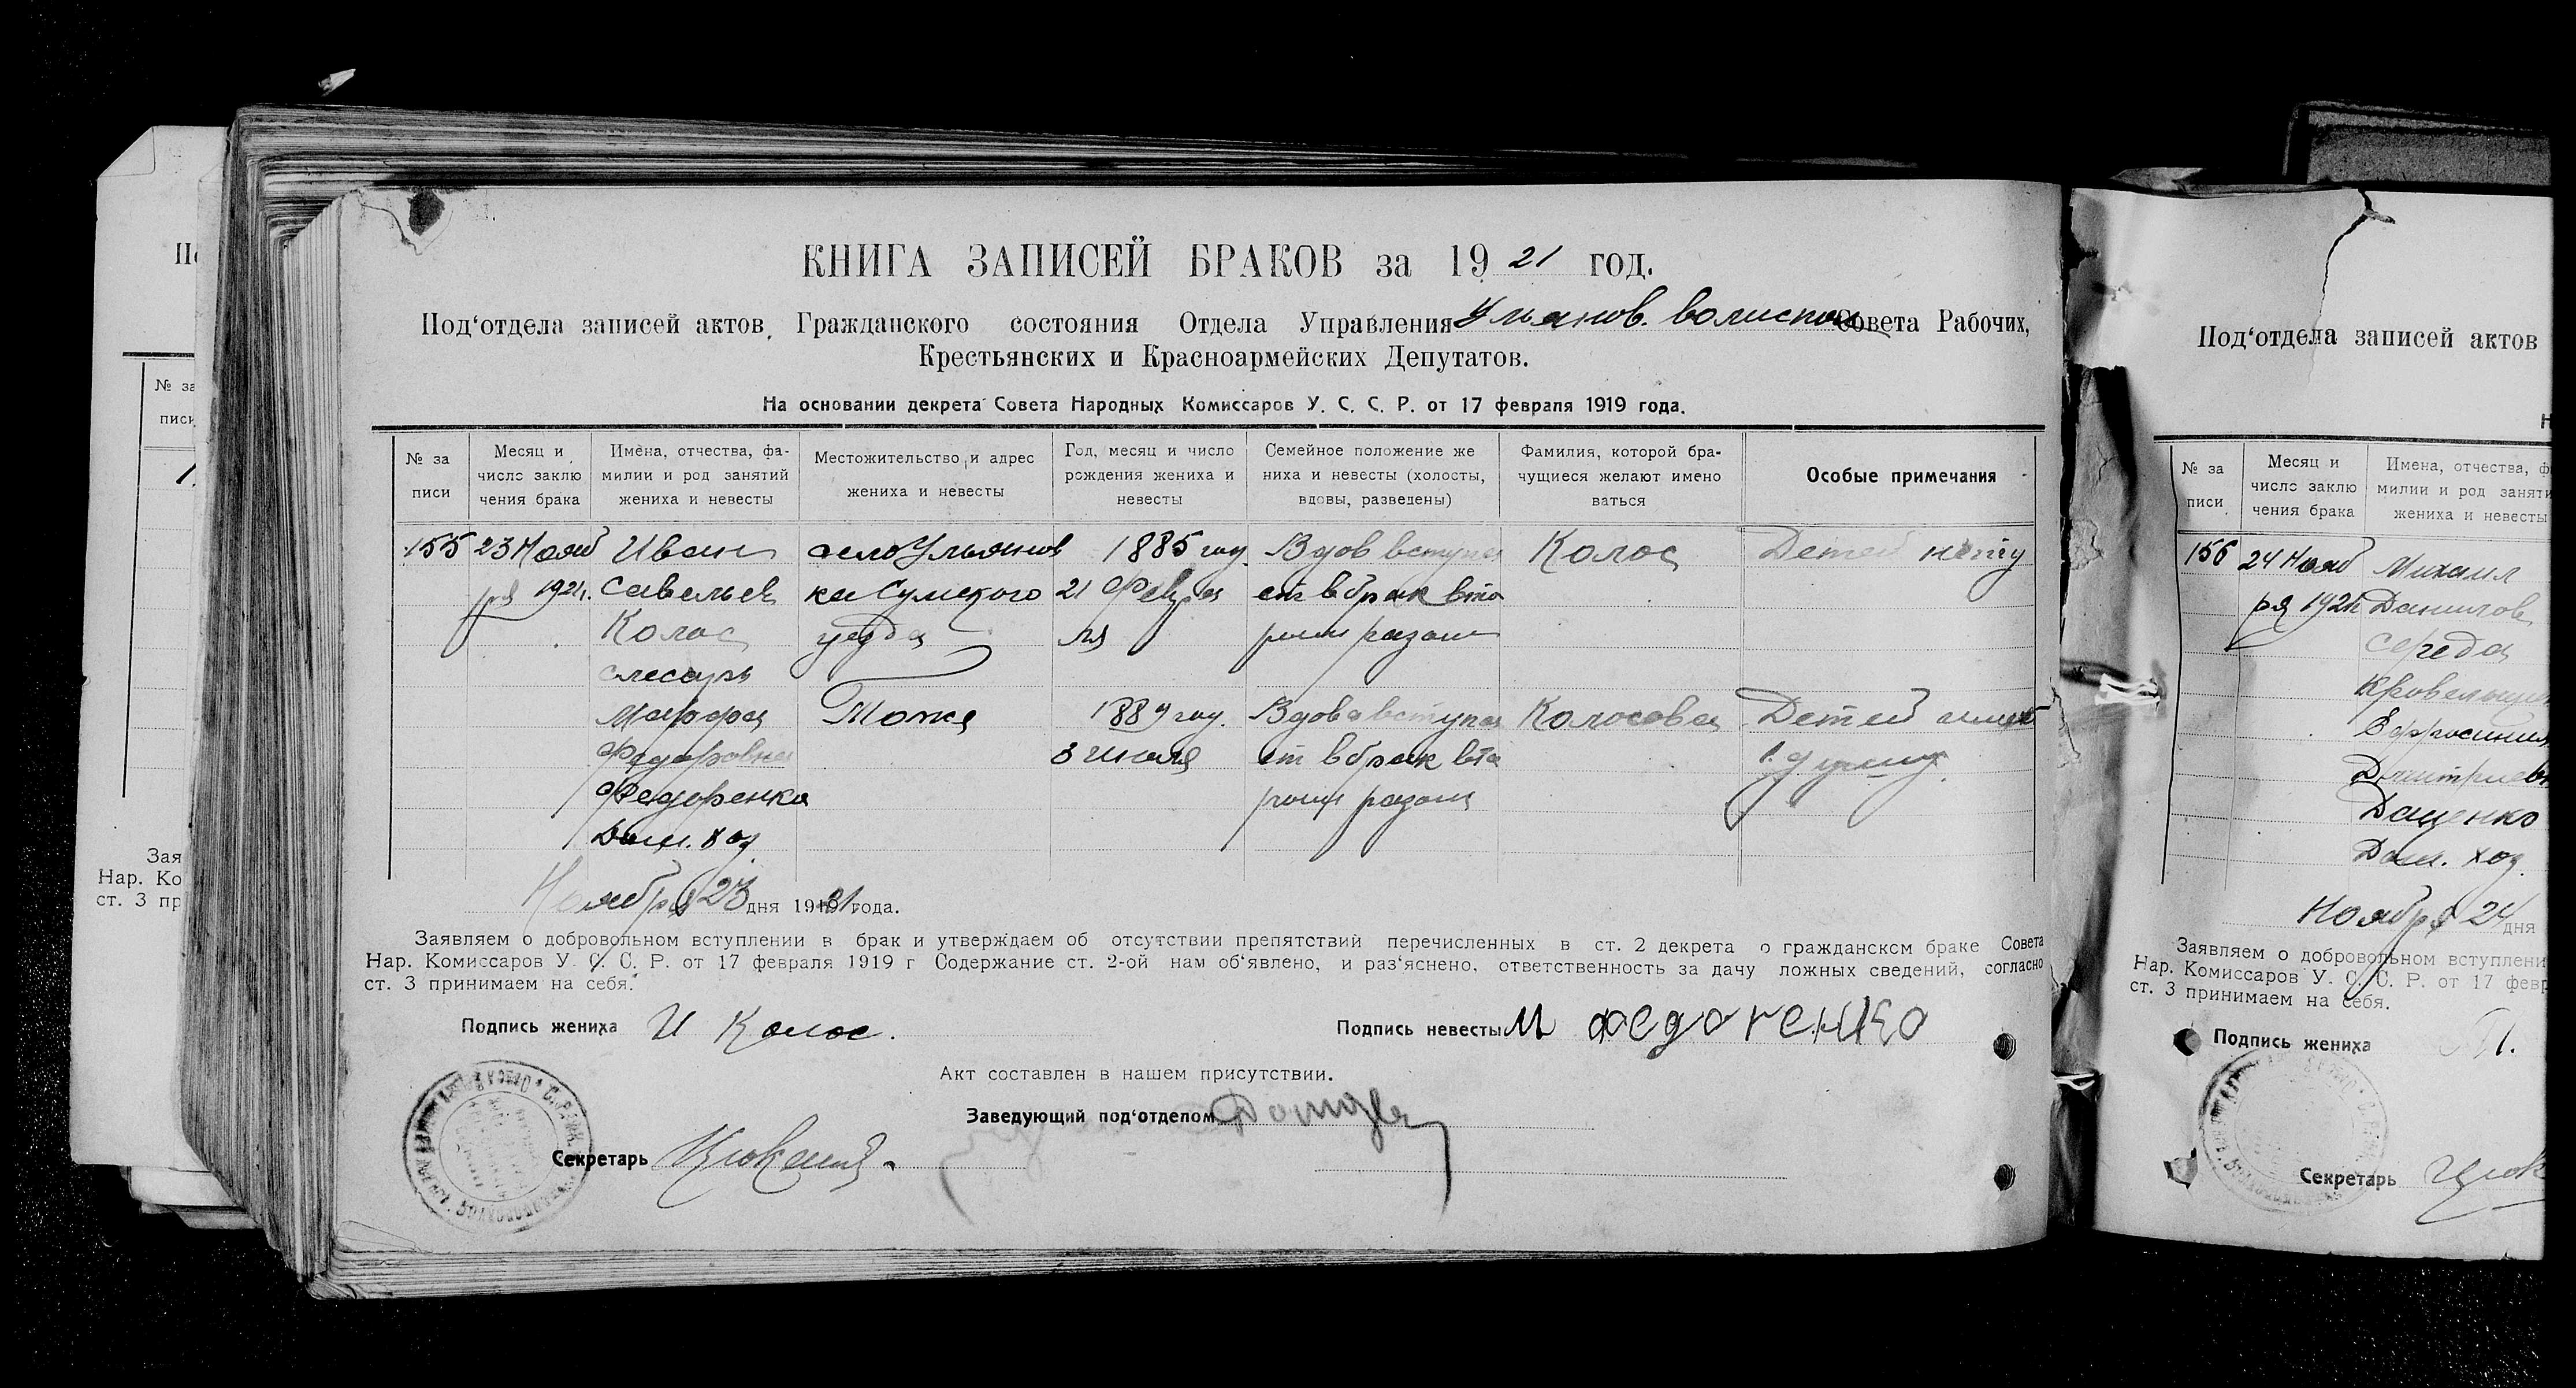 КНИГА ЗАПИСЕЙ БРАКОВ за 1921 год.
Под‘отдела записей актов Гражданского состояния Отдела Управления Ульянов. волиспол Совета Рабочих,
Крестьянских и Красноармейских Депутатов.
На основании декрета Совета Народных Комиссаров У. С. С. Р. от 17 февраля 1919 года.
№ за
писи
Месяц и
число заклю
чения брака
Имена, отчества, фа-
милии и род занятий
жениха и невесты
Местожительство и адрес
жениха и невесты
Год, месяц и число
рождения жениха и
невесты
Семейное положение же
ниха и невесты (холосты,
вдовы, разведены)
Фамилия, которой бра-
чущиеся желают имено
ваться
Особые примечания
155
23 Нояб
ря 1921.
Иван
Савельев
Колос
слесарь
село Ульянов
ка Сумского
уезда
1885 год.
21 Февра
ля
Вдов вступа
ет в брак вто
рым разом
Колос
Детей нету
Марфа
Федоровна
Федоренко
Дом. хоз.
Тоже
1889 год.
3 Июля
Вдова вступа
ет в брак вто
рым разом
Колосова
Детей имеет
1. душу.
Ноября 23 дня 1921 года.
Заявляем о добровольном вступлении в брак и утверждаем об отсутствии препятствий перечисленных в ст. 2 декрета о гражданском браке Совета
Нар. Комиссаров У. С. С. Р. от 17 февраля 1919 г Содержание ст. 2-ой нам об‘явлено, и раз‘яснено, ответственность за дачу ложных сведений, согласно
ст. 3 принимаем на себя.
Подпись жениха И Колос.
Подпись невесты М Федоренко
Акт составлен в нашем присутствии.
Заведующий под‘отделом
Секретарь
№ за
писи
1
Зая
Нар. Ко
ст. 3 пр
Под‘отдела записей актов
Н
№ за
писи
Месяц и
число заклю
чения брака
Имена, отчества, ф
милии и род заняти
жениха и невесты
156
24 Нояб
ря 1921
Михаил
Данилов
Середа
Кровельщи
Ефросиния
Дмитриевн
Даценко
Дом. хоз.
Ноября 24 дня
Заявляем о добровольном вступлени
Нар. Комиссаров У. С. С. Р. от 17 февр
ст. 3 принимаем на себя.
Подпись жениха
Секретарь